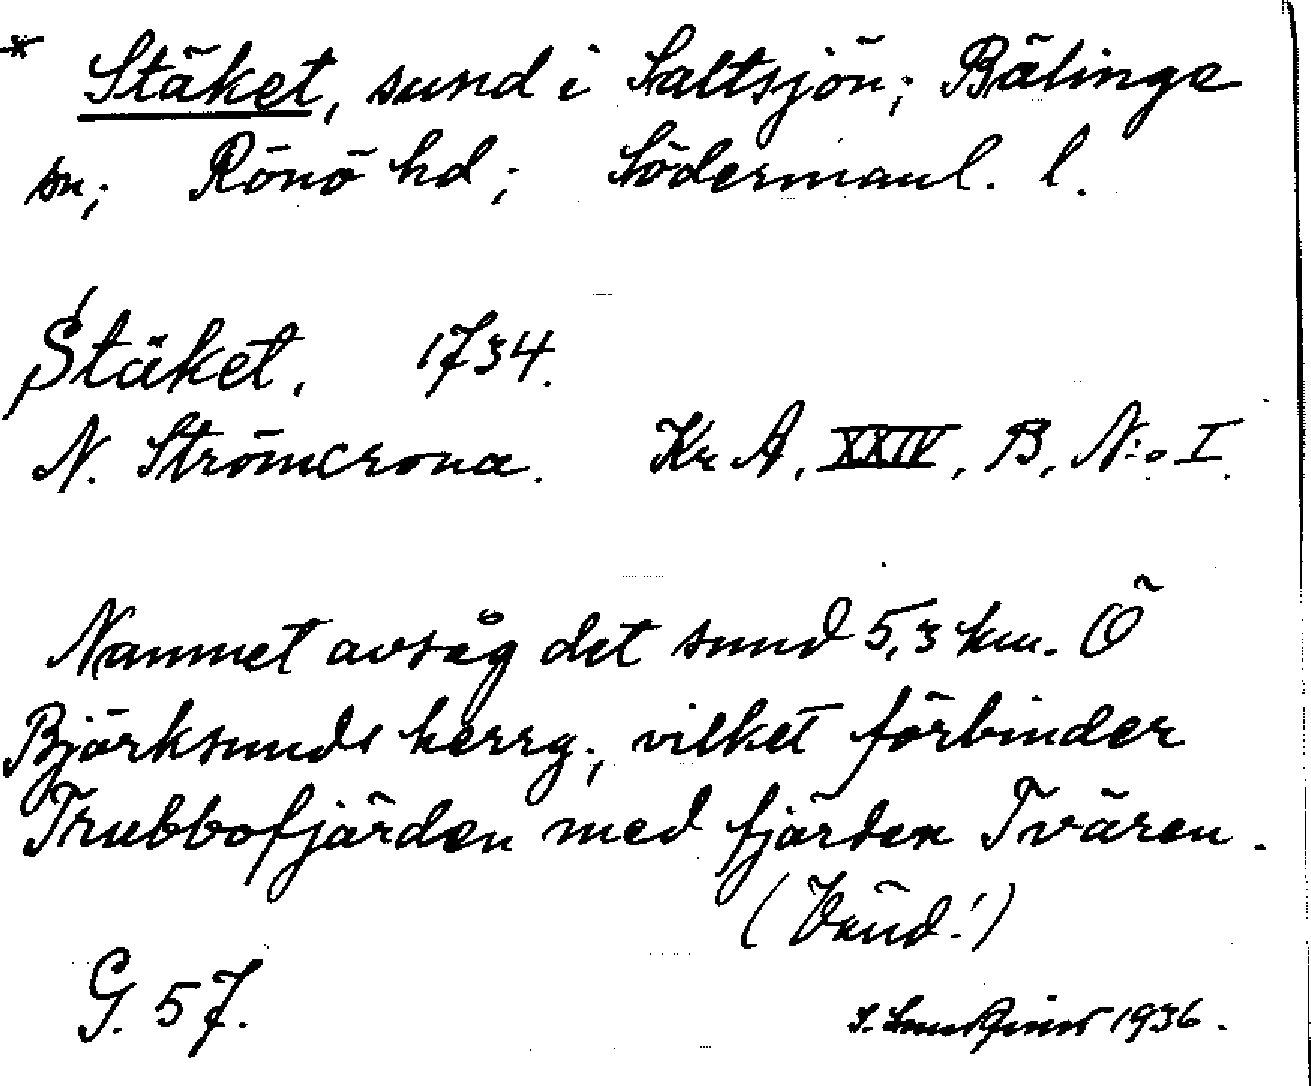 * Stäket, sund i Saltsjön; Bälinge
sn; Rönö hd; Södermanl. l.
Stäket. 1734.
N. Strömcrona. Kr A, XXIV, B, N:o I.
Namnet avsåg det sund 5,3 km. Ö
Björksunds herrg., vilket förbinder
Trubbofjärden med fjärden Tvären.
(Vänd!)
G. 57.
1936.